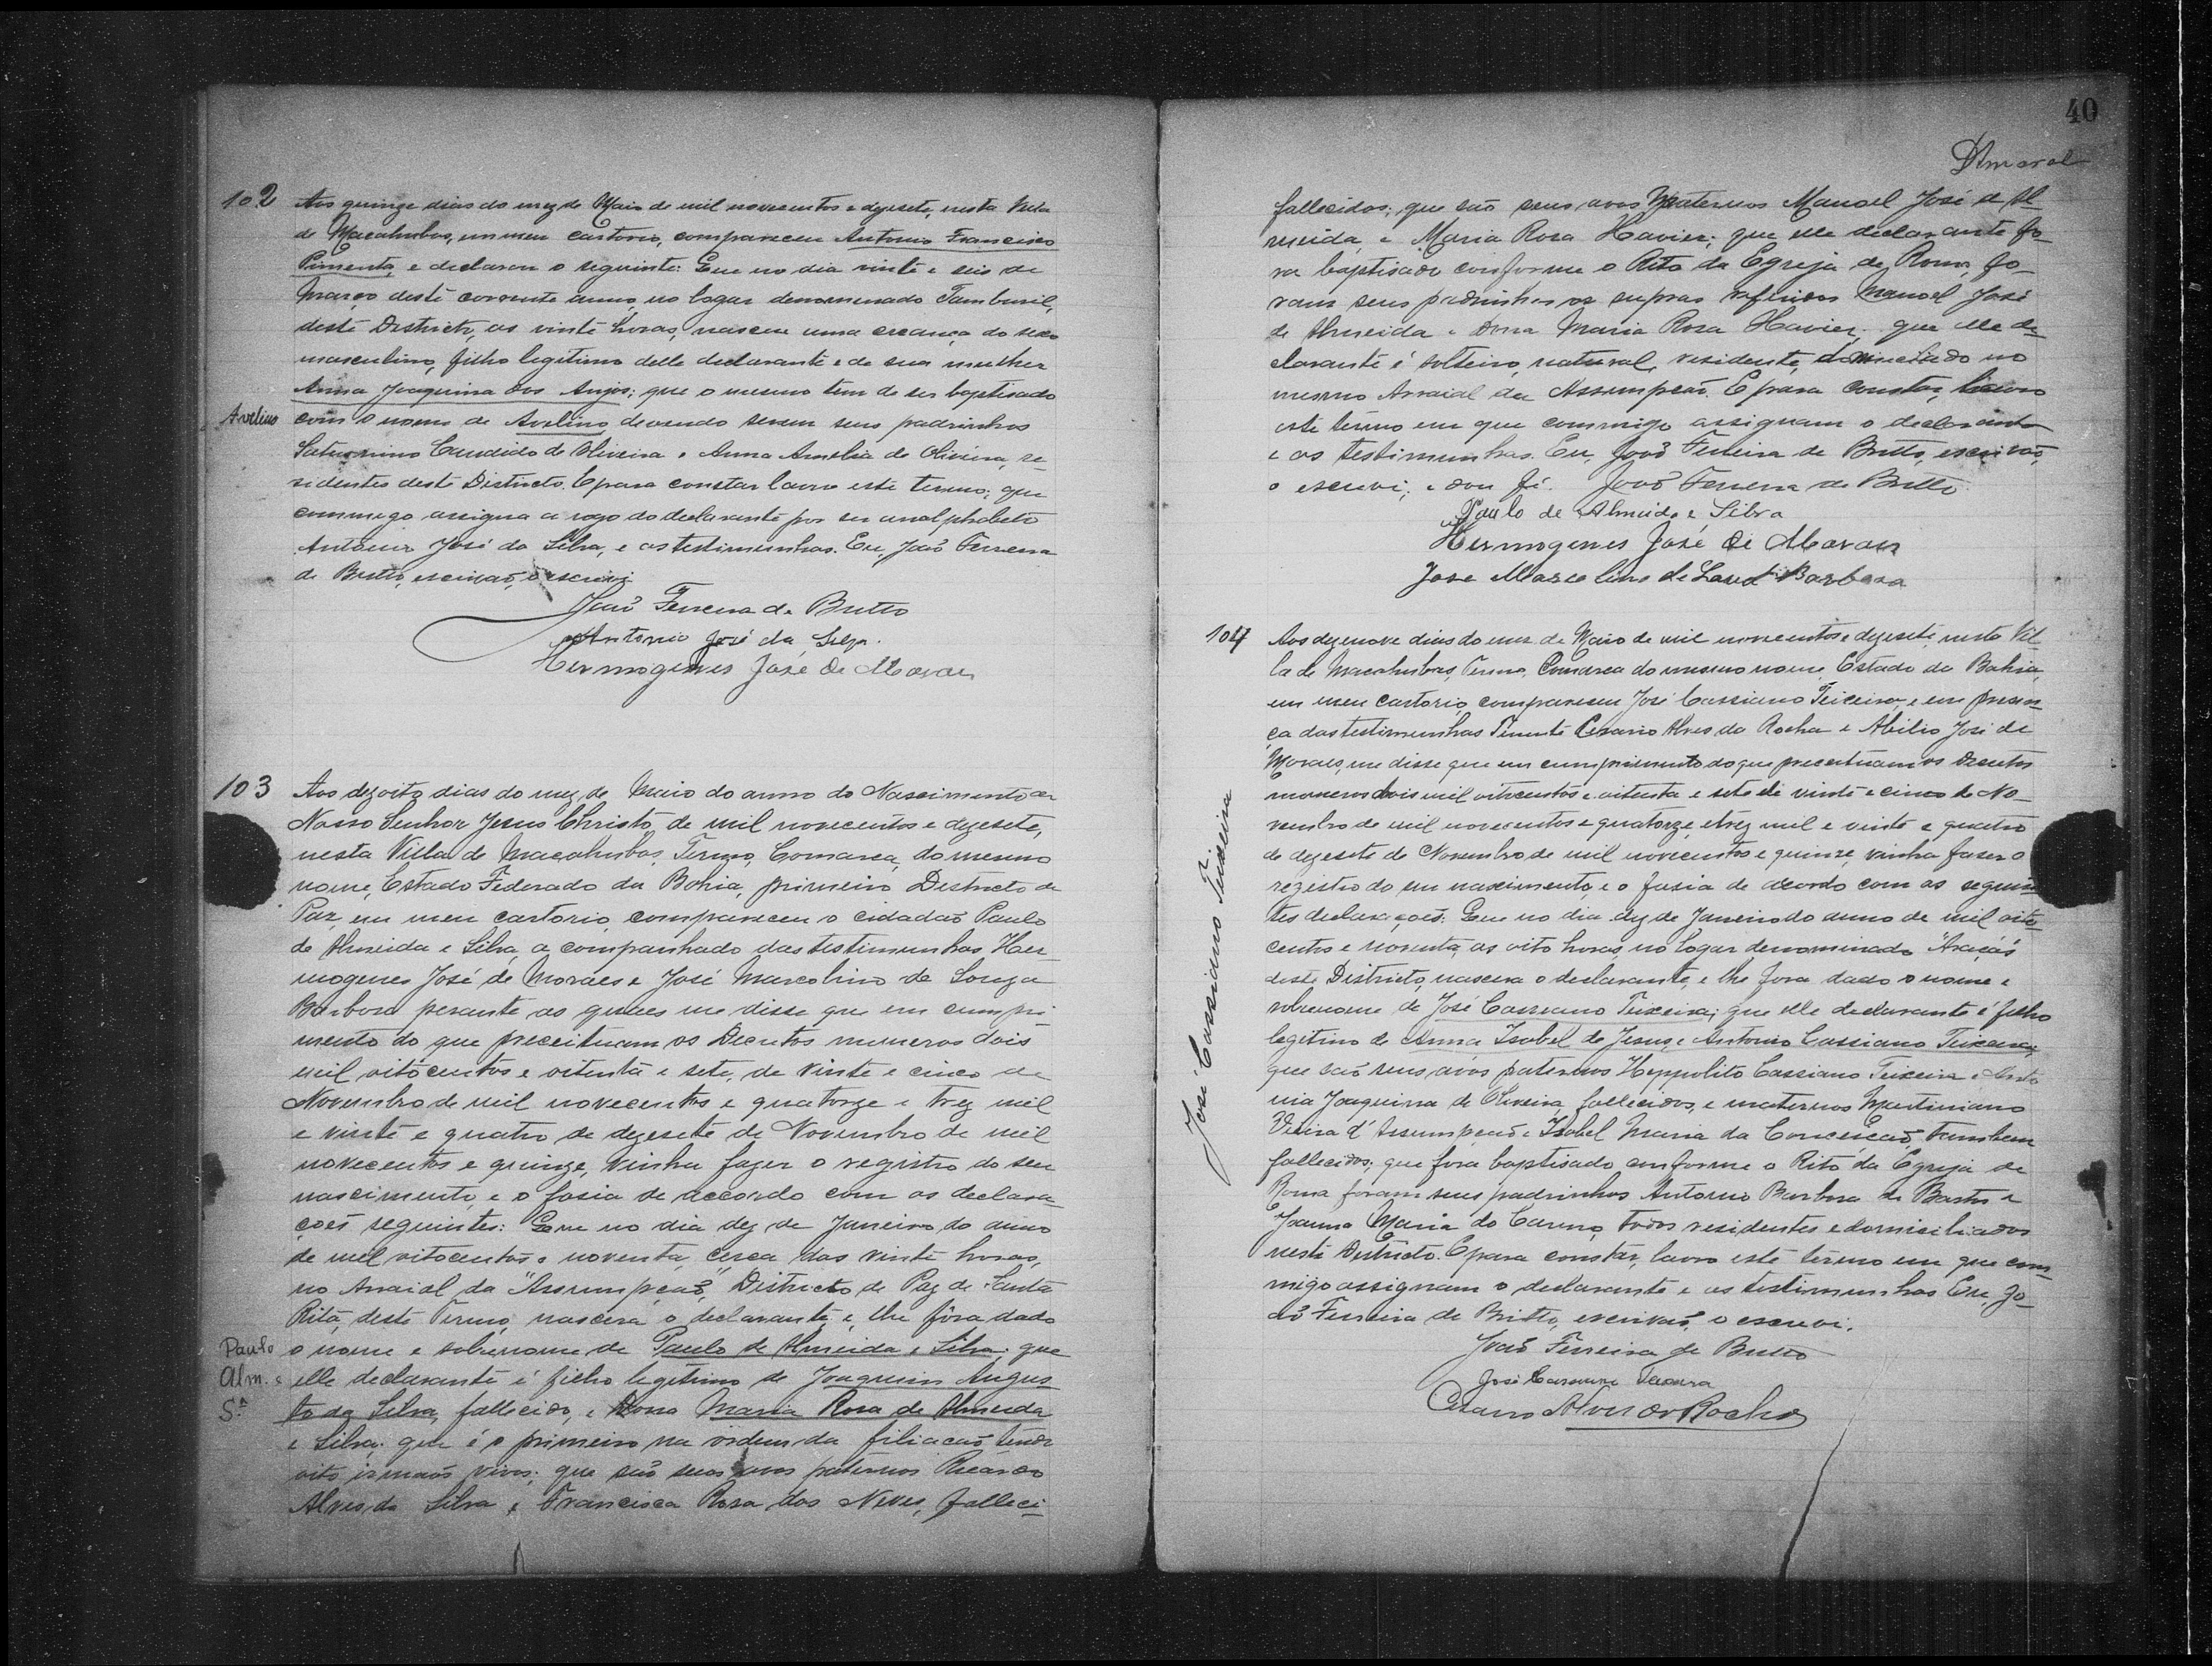 102 Aos quinze dias do mez de Maio de mil novecentos e dezesete, nesta Villa
de Macahubas, em meu cartorio, compareceu Antonio Francisco
Pimenta, e declarou o seguinte: Que no dia vinte e seis de
Março deste corrente anno, no logar denominado Tamburil,
deste Districto, as vinte horas, nasceu uma creança do sexo
masculino, filho legitimo delle declarante e de sua mulher
Anna Joaquina dos Anjos; que o mesmo tem de ser baptisado
Avelino com o nome de Avelino, devendo serem seus padrinhos
Saturnino Candido de Oliveira e Anna Amelia de Oliveira, re-
sidentes deste Districto. E para constar lavro este termo, que
commigo assigna a rogo do declarante por ser analphabeto
Antonio José da Silva, e as testimunhas. Eu, João Ferreira
de Britto, escrivão, o escrevi.
João Ferreira de Britto
Antonio José da Silva.
Hermogenes José de Moraes
103 Aos dezoito dias do mez de Maio do anno do Nascimento de
Nosso Senhor Jesus Christo, de mil novecentos e dezesete,
nesta Villa de Macahubas, Termo, Comarca, do mesmo
nome, Estado Federado da Bahia, primeiro Districto de
Paz, em meu cartorio, compareceu o cidadão Paulo
de Almeida e Silva, acompanhado das testimunhas Her-
mogenes José de Moraes e José Marcolino de Souza
Barbosa perante as quaes me disse que em cumpri-
mento do que preceituam os Decretos numeros dois
mil oitocentos e oitenta e sete, de vinte e cinco de
Novembro de mil novecentos e quatorze e trez mil
e vinte e quatro de dezesete de Novembro de mil
novecentos e quinze, vinha fazer o registro do seu
nascimento, e o fasia de accordo com as declara-
ções seguintes: Que no dia dez de Janeiro do anno
de mil oitocentos e noventa, cerca das vinte horas,
no Arraial da "Assumpção", Districto de Paz de Santa
Rita, deste Termo, nascera o declarante e, lhe fôra dado
Paulo o nome e sobrenome de Paulo de Almeida e Silva; que
Alm. e elle declarante é filho legitimo de Joaquim Augus-
Sª to da Silva, fallecido, e Dona Maria Rosa de Almeida
e Silva; que é o primeiro na ordem da filiação, tendo
oito irmãos vivos; que são seus avos paternos Ricardo
Alves da Silva e Francisca Rosa das Neves, falleci-
40
DAmaral
fallecidos; que são seus avos Maternos Manoel José de Al-
meida e Maria Rosa Xavier; que elle declarante fo-
ra baptisado conforme o Rito da Egreja de Roma, fo-
ram seus padrinhos os supras referidos Manoel José
de Almeida e Dona Maria Rosa Xavier; que elle de-
clarante é solteiro, natural, residente, domiciliado no
mesmo Arraial da Assumpção. E para constar, lavro
este termo em que commigo assignam o declarante
e as testimunhas. Eu, João Ferreira de Britto, escrivão,
o escrevi, e dou fé. João Ferreira de Britto.
Paulo de Almeida e Silva
Hermogenes José de Moraes
José Marcolino de Barbosa
José Cassiano Teixeira
104 Aos dezenove dias do mez de Maio de mil novecentos e dezesete, nesta Vil-
la de Macahubas, Termo, Comarca do mesmo nome, Estado da Bahia,
em meu cartorio, compareceu José Cassiano Teixeira, e em presen-
ça das testimunhas Tenente Cesario Alves da Rocha e Abilio José de
Moraes, me disse que em cumprimento do que preceituam os Decretos
numeros dois mil oitocentos e oitenta e sete de vinte e cinco de No-
vembro de mil novecentos e quatorze, e trez mil e vinte e quatro
de dezesete de Novembro de mil novecentos e quinze, vinha faser o
registro do seu nascimento e o fasia de acordo com as seguin-
tes declarações: Que no dia dez de Janeiro do anno de mil oito-
centos e noventa, as oito horas, no logar denominado "Araçás"
deste Districto, nascera o declarante, e lhe fora dado o nome e
sobrenome de José Cassiano Teixeira; que elle declarante é filho
legitimo de Anna Isabel de Jesus, e Antonio Cassiano Teixeira;
que são seus avós paternos Heppolito Cassiano Teixeira e Anto-
nia Joaquina de Oliveira, fallecidos, e maternos Martiniano
Vieira d'Assumpção e Isabel Maria da Conceicão, tambem
fallecidos; que fora baptisado conforme o Rito da Egreja de
Roma foram seus padrinhos Antonio Barbosa de Bastos e
Joanna Maria do Carmo, todos residentes e domiciliados
neste Districto. E para constar, lavro este termo em que com-
migo assignam o declarante e as testimunhas. Eu, Jo-
ão Ferreira de Britto, escrivão, o escrevi.
João Ferreira de Britto
José Cassiano Teixeira
Cesario Alves da Rocha